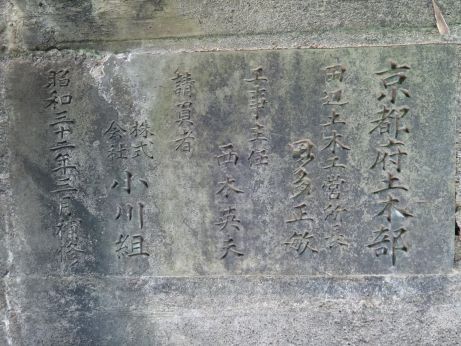 京都府土木部
田辺土木工営所長
喜多正敏
工事主任
西本英夫
請負者
株式
会社
小川組
昭和三十二年三月補修